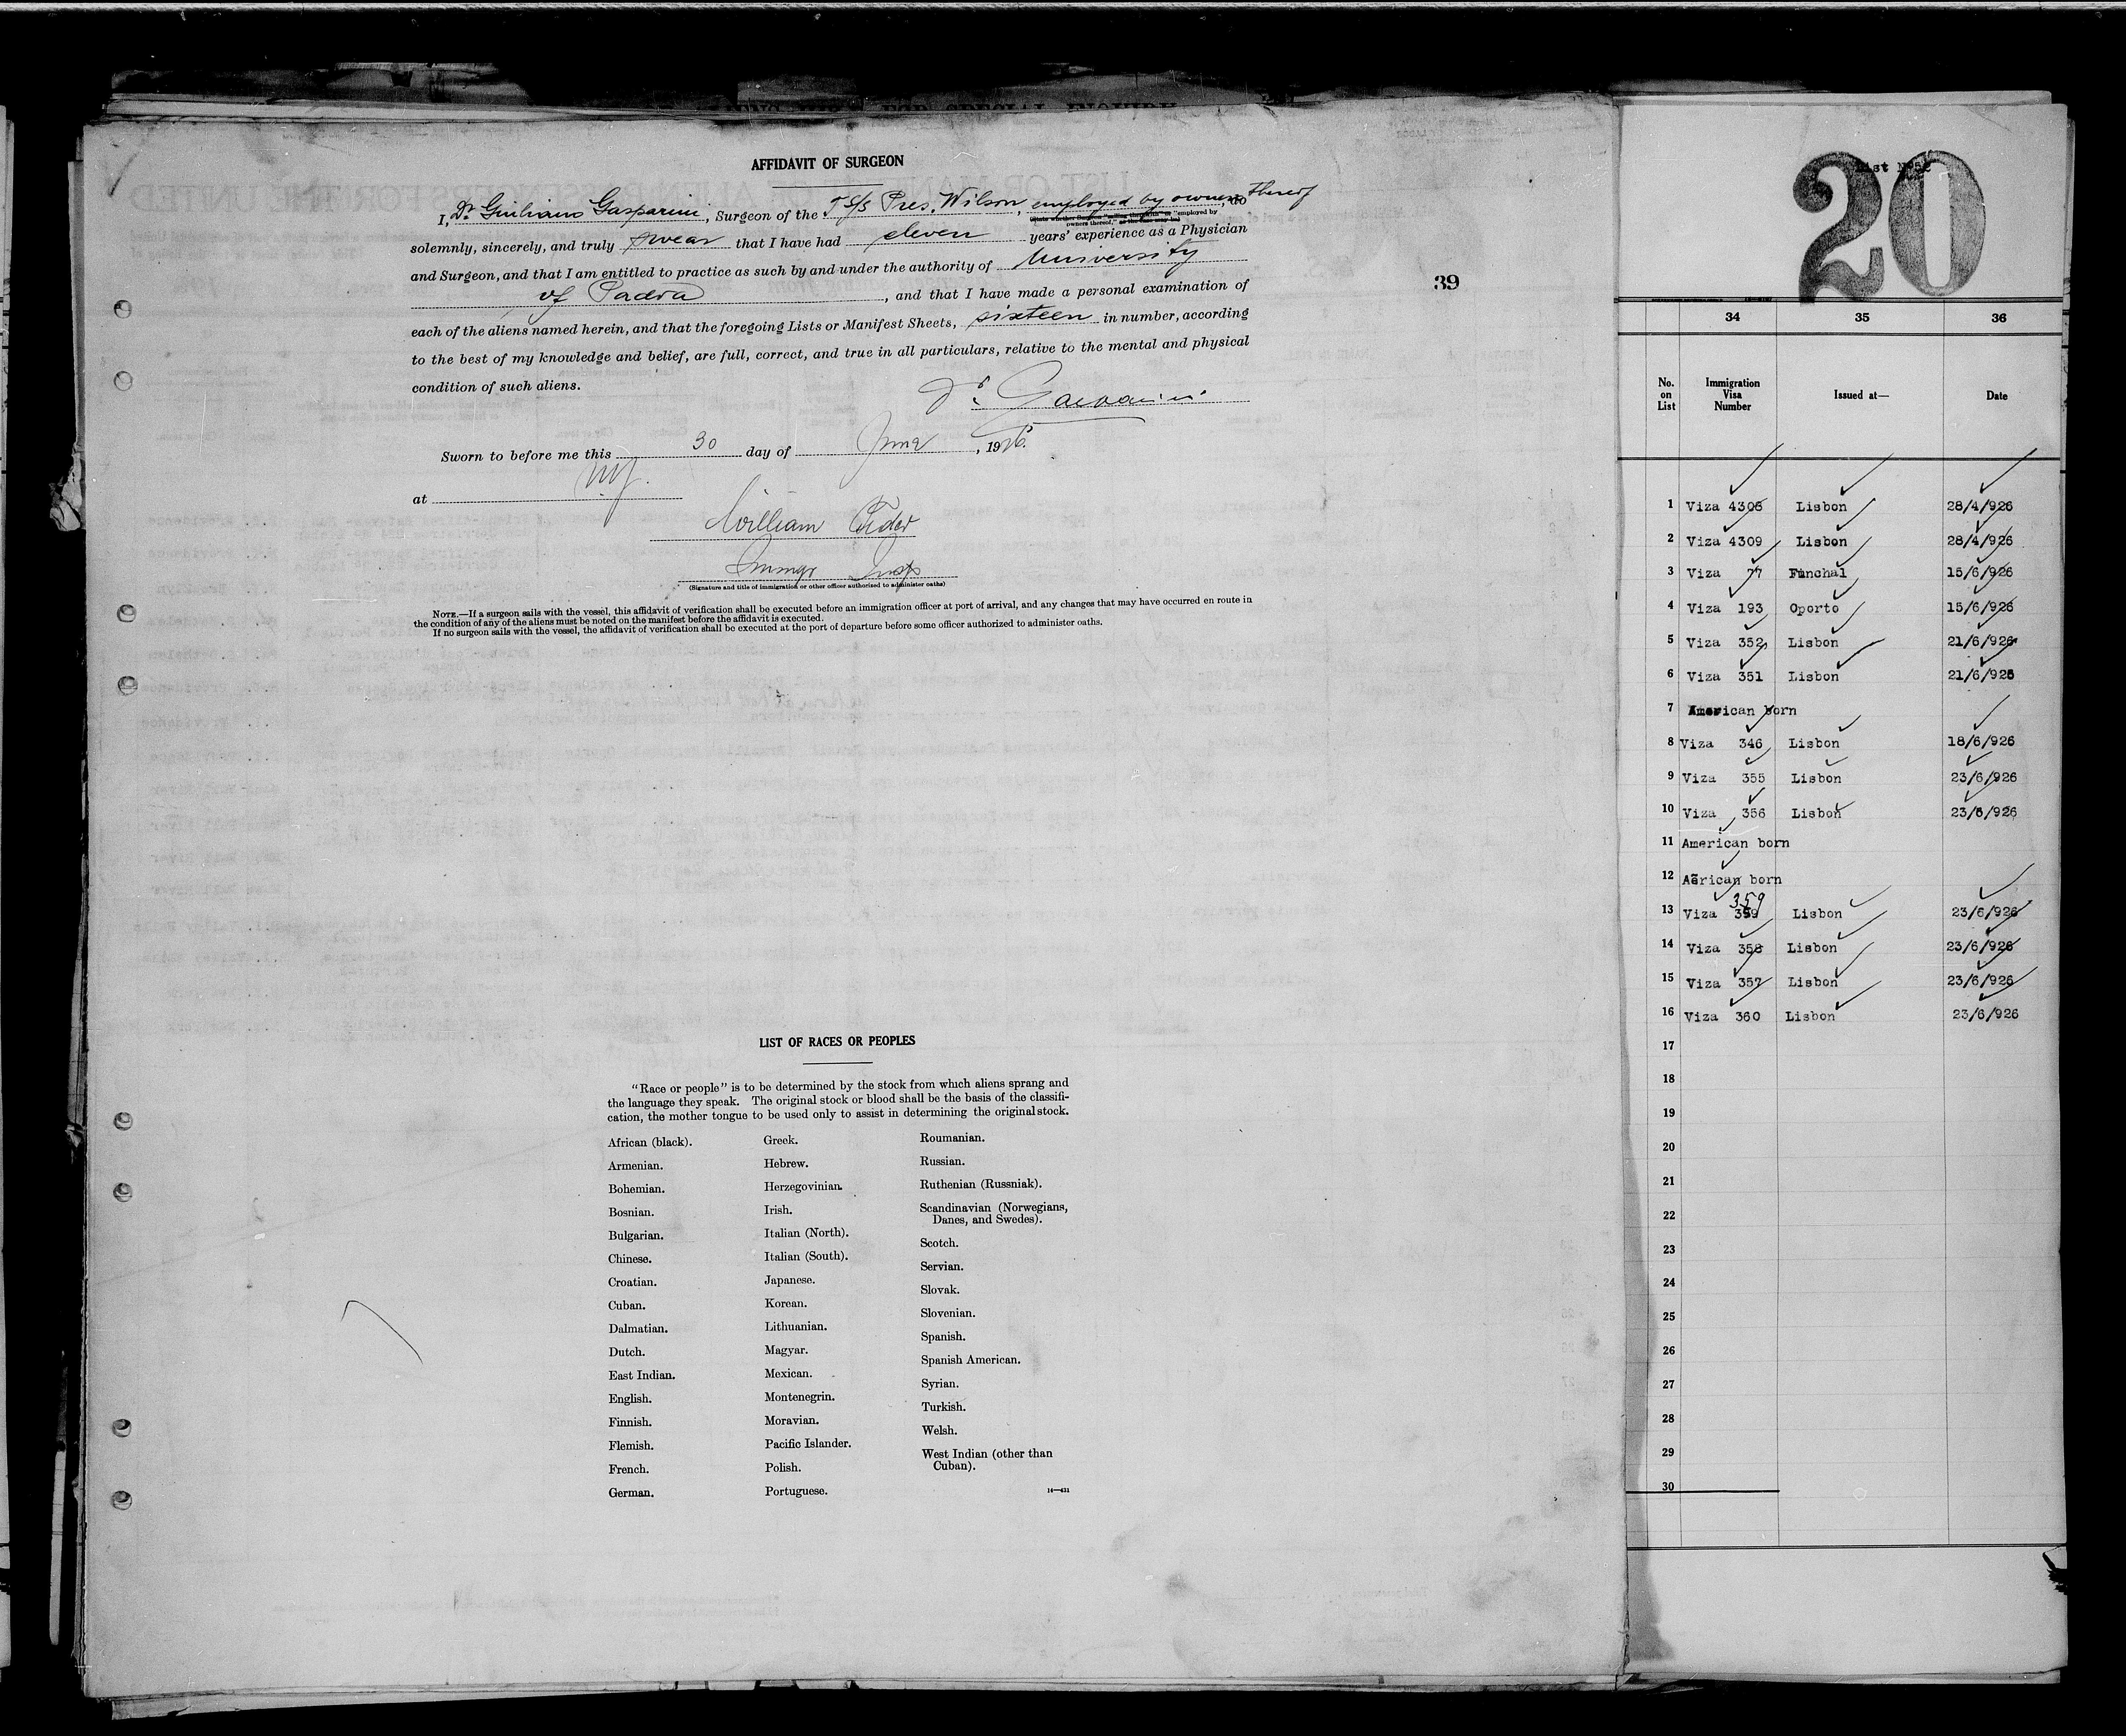 AFFIDAVIT OF SURGEON
I, Dr. Giuliano Gasparini, Surgeon of the S/S Pres. Wilson, employed by owners thereof, do
solemnly, sincerely, and truly swear that I have had eleven years' experience as a Physician
and Surgeon, and that I am entitled to practice as such by and under the authority of University
of Padova, and that I have made a personal examination of
each of the aliens named herein, and that the foregoing Lists or Manifest Sheets, sixteen in number, according
to the best of my knowledge and belief, are full, correct, and true in all particulars, relative to the mental and physical
condition of such aliens.
Dr. Gasparini
Sworn to before me this 30 day of June, 1926.
at NY.
William
Immgr Insp
(Signature and title of immigration or other officer authorized to administer oaths)
NOTE.—If a surgeon sails with the vessel, this affidavit of verification shall be executed before an immigration officer at port of arrival, and any changes that may have occurred en route in
the condition of any of the aliens must be noted on the manifest before the affidavit is executed.
If no surgeon sails with the vessel, the affidavit of verification shall be executed at the port of departure before some officer authorized to administer oaths.
39
LIST OF RACES OR PEOPLES
"Race or people" is to be determined by the stock from which aliens sprang and
the language they speak. The original stock or blood shall be the basis of the classifi-
cation, the mother tongue to be used only to assist in determining the original stock.
African (black).
Armenian.
Bohemian.
Bosnian.
Bulgarian.
Chinese.
Croatian.
Cuban.
Dalmatian.
Dutch.
East Indian.
English.
Finnish.
Flemish.
French.
German.
Greek.
Hebrew.
Herzegovinian.
Irish.
Italian (North).
Italian (South).
Japanese.
Korean.
Lithuanian.
Magyar.
Mexican.
Montenegrin.
Moravian.
Pacific Islander.
Polish.
Portuguese.
Roumanian.
Russian.
Ruthenian (Russniak).
Scandinavian (Norwegians,
Danes, and Swedes).
Scotch.
Servian.
Slovak.
Slovenian.
Spanish.
Spanish American.
Syrian.
Turkish.
Welsh.
West Indian (other than
Cuban).
14—431
20
34 35 36
No. on List Immigration Visa Number Issued at— Date
1 Viza 4306 Lisbon 28/4/926
2 Viza 4309 Lisbon 28/4/926
3 Viza 77 Funchal 15/6/926
4 Viza 193 Oporto 15/6/926
5 Viza 352 Lisbon 21/6/926
6 Viza 351 Lisbon 21/6/926
7 American born
8 Viza 346 Lisbon 18/6/926
9 Viza 355 Lisbon 23/6/926
10 Viza 356 Lisbon 23/6/926
11 American born
12 Aërican born
359
13 Viza 359 Lisbon 23/6/926
14 Viza 358 Lisbon 23/6/926
15 Viza 357 Lisbon 23/6/926
16 Viza 360 Lisbon 23/6/926
17
18
19
20
21
22
23
24
25
26
27
28
29
30